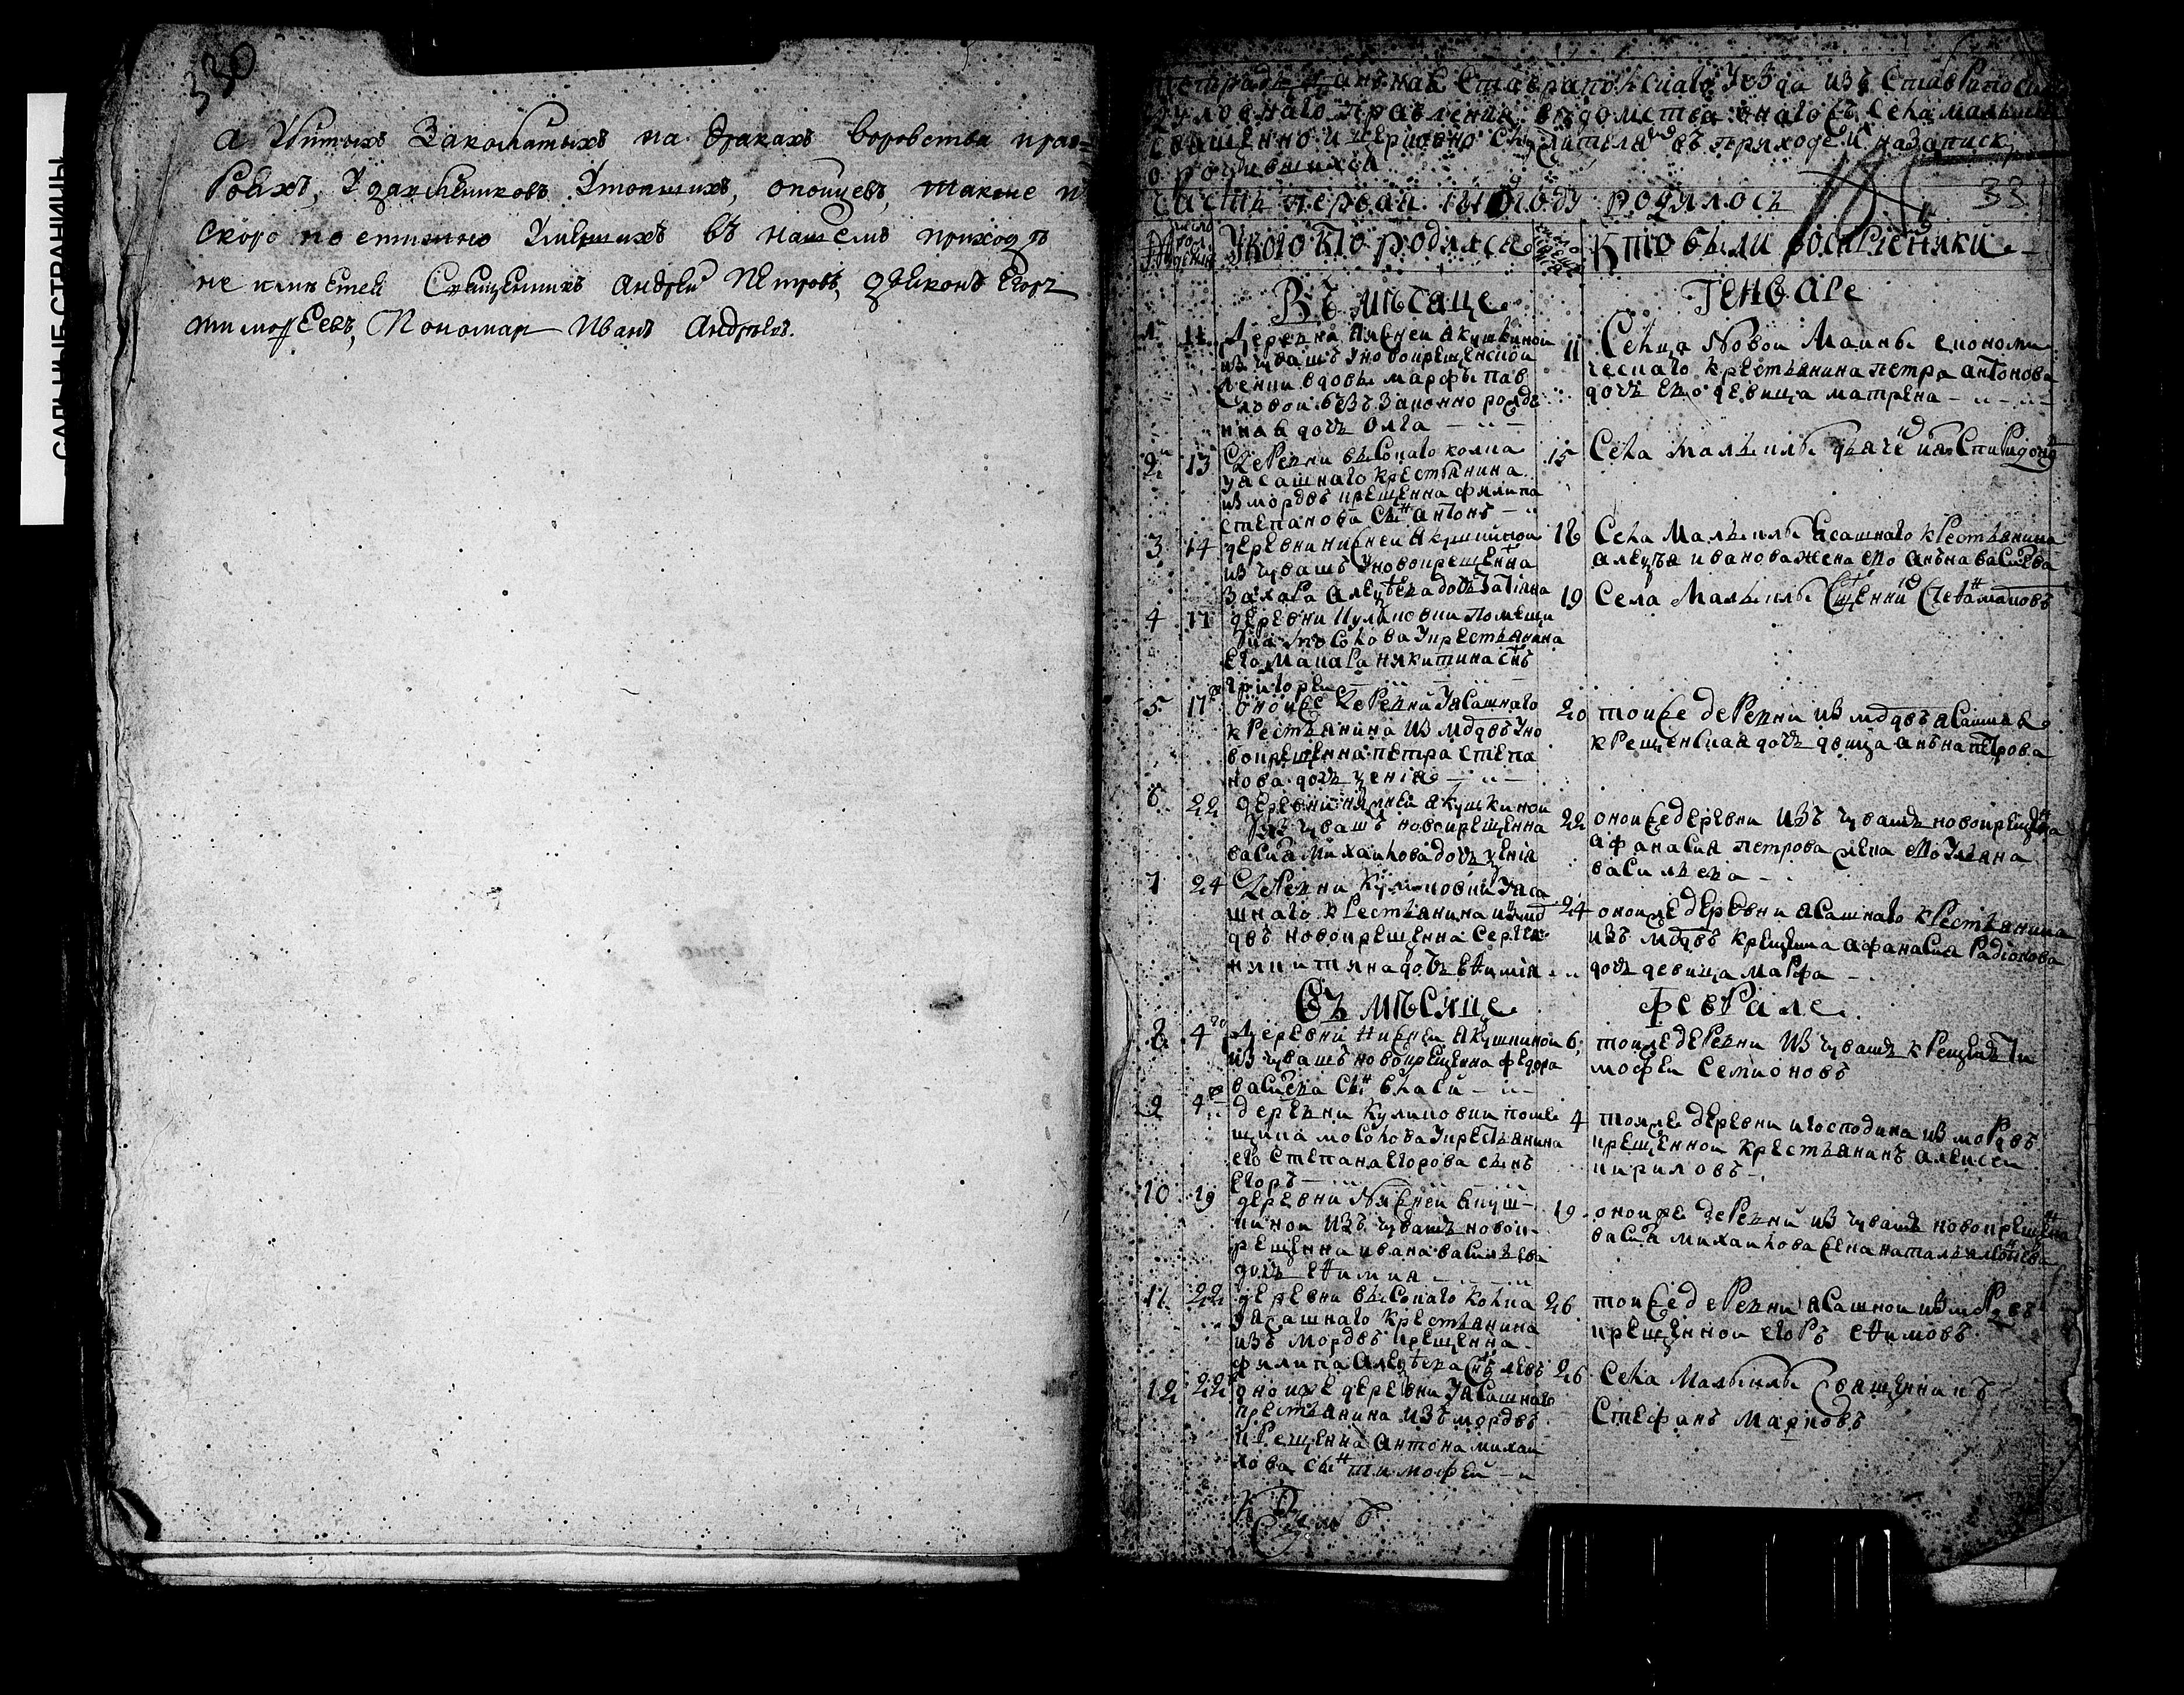 330
а Убитыхъ Заколатыхъ на дракахъ воровства
Робихъ, Удавленниковъ Утопшихъ, опоицевъ, такоже и
скоропостижно Умершихъ въ нашемъ приходѣ
не имѣетей Священникъ Андрей Петровъ, Дьяконъ Егоръ
тимофеевъ, Пономарь Иванъ Андрѣевъ.
САЛЬНЫЕ СТРАНИЦЫ
Ставрапольскаго Уѣзда изъ Ставрапольскаго
духовнаго правления вѣдомства онаго села
священно и церковно служителямъ въ приходе на Записку
о родившихся
часть первая году родилось 33
У кого кто родился Кто были восприемники
Въ мѣсяце Генваре
1 11 Деревна Нижней Акушкиной
изъ чувашъ Уновокрещенской
женки вдовы марфы пав
ловой безъ законно рожде
нная дочь Олга
11 Сельца Новой Маины економи
ческаго крестьянина петра антонова
дочь ево девица матрена
2 13 Деревни высокаго колка
Уясашнаго крестьянина
из мордвъ крещенна филипа
степанова сынъ антонъ
15 Села дьячекъ Спиридонъ
3 14 деревни нижней Акушкиной
из чувашъ Уновокрещенна
Захара алеѯѣева дочь Татiана
18 Села ясашнаго крестьянина
алеѯѣя иванова жена ево анъна васильева
4 17 деревни Куликовки помещи
ка мосолова Укрестьянина
ево макара никитина сынъ
григореи
19 Села Священникъ Стефанъ марковъ
5 17 оноиже Деревни Уясашнаго
крестьянина из мордвъ Уно
вокрещенна петра степа
нова дочь ѯенiя
20 тоиже деревни из мордвъ ясашная
крещенская дочь двица анъна петрова
6 22 деревни нижней акушкиной
изъ чувашъ новокрещенна
василя михаилова дочь ѯенiя
22 оноиже деревни изъ чувашъ новокрещена
афанасия петрова жена ево Ульяна
васильева
7 24 Деревни Куликовки Уяса
шнаго крестьянина из мор
двъ новокрещенна сергея
никитина дочь евѳимiя
24 оноиже деревни ясашнаго крестьянина
изъ мордвъ крещенна афанасия Радiонова
дочь девица марфа
Въ мѣсяце феврале
8 4 Деревни нижней акушкиной
из чувашъ новокрещенна федора
василева сынъ власий
6 тоиже деревни из чувашъ крещенъ Ти
мофеи семионовъ
9 4 деревни куликовки поме
щика мосолова Укрестьянина
ево степана егорова сынъ
егоръ
4 тоиже деревни игосподина из мордвъ
крещенной крестьянинъ алеѯеи
кириловъ
10 19 деревни Нижней акуш
киной изъ чувашъ новок
рещенна ивана васильева
дочь евѳимия
19 оноиже деревни из чувашъ новокрещена
василя михаилова жена наталья
11 22 деревни высокаго колка
Уясашнаго крестьянина
изъ мордвъ крещенна
филипа алеѯѣева сынъ левъ
26 тоиже деревни ясашной из мордвъ
крещенной егоръ евѳимовъ
12 22 оноиже деревни Уясашнаго
крестьянина изъ мордвъ
крещенна антона михаи
лова сынъ тимофей
26 Села Священникъ
Стефанъ марковъ